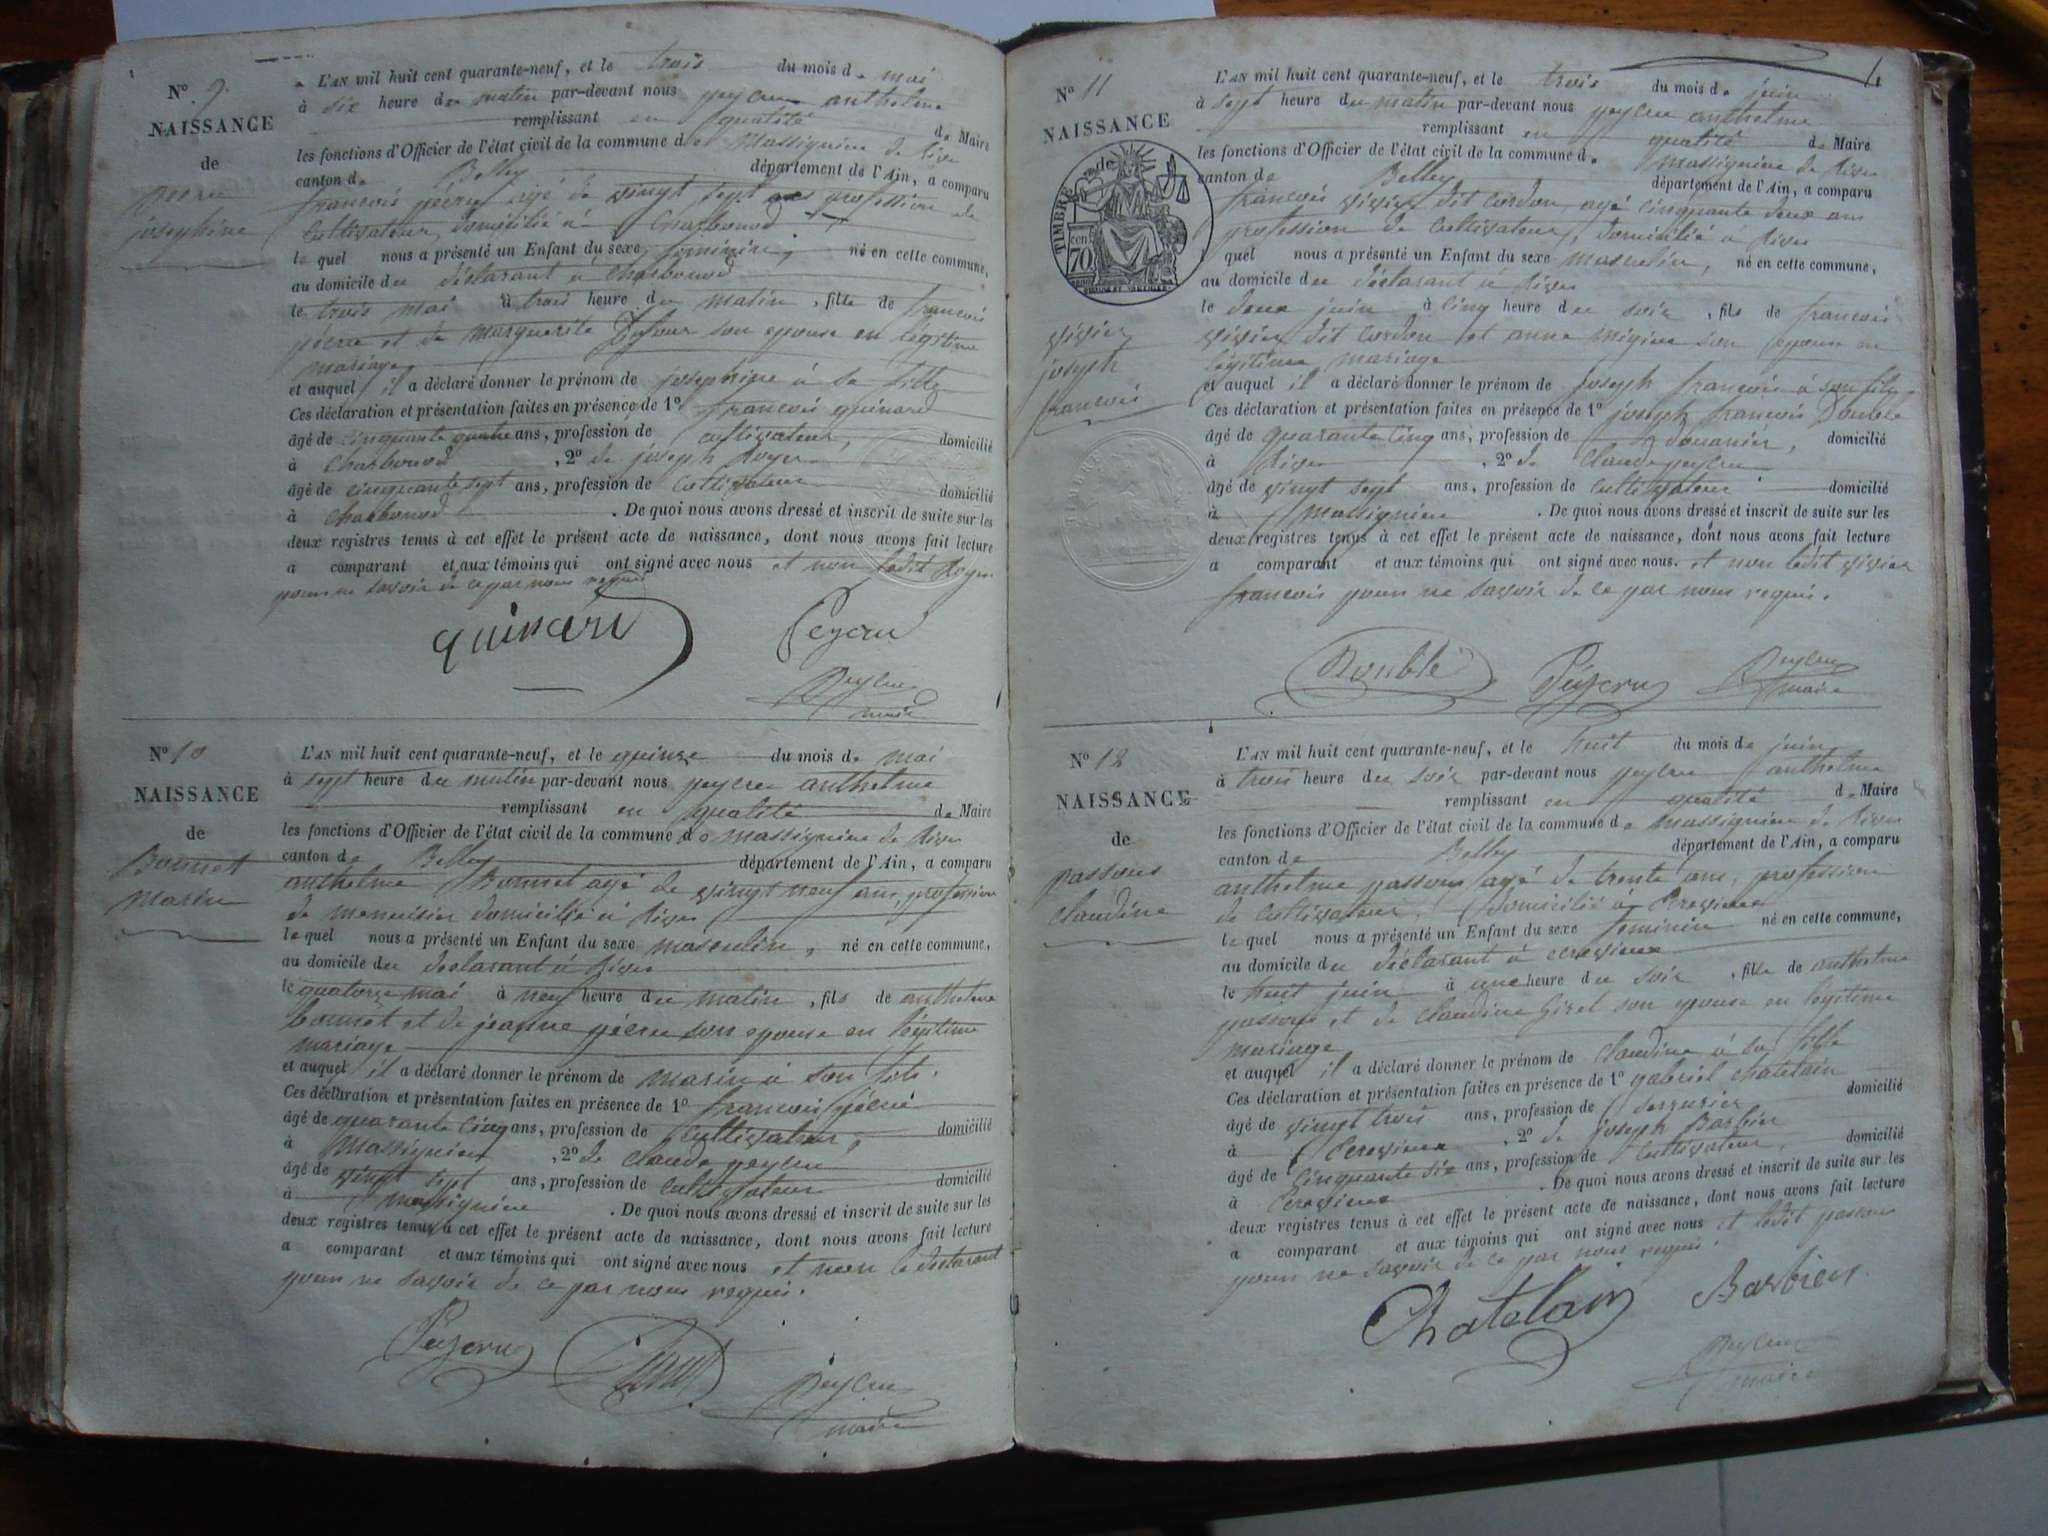 N° 9
NAISSANCE
de
josephine
L'AN mil huit cent quarante-neuf, et le trois du mois de mai
à six heure du matin par-devant nous peycru anthelme
remplissant en qualité de Maire
les fonctions d'Officier de l'état civil de la commune de Massignieu de Rives
canton de Belley département de l'Ain, a comparu
françois pécru agé de vingt sept ans profession de
Cultivateur, domicilié à Charbonod
le quel nous a présenté un Enfant du sexe féminin, né en cette commune,
au domicile du déclarant à Charbonod
le trois mai à trois heure du matin, fille de françois
pécru et de Marguerite Dufour son epouse en légitime
mariage
et auquel il a déclaré donner le prénom de josephine à sa fille
Ces déclaration et présentation faites en présence de 1° françois quinard
âgé de cinquante quatre ans, profession de cultivateur, domicilié
à Charbonod, 2° de joseph Royer
âgé de cinquante sept ans, profession de Cultivateur domicilié
à Charbonod. De quoi nous avons dressé et inscrit de suite sur les
deux registres tenus à cet effet le présent acte de naissance, dont nous avons fait lecture
a comparant et aux témoins qui ont signé avec nous et non ledit Royer
pour ne savoir de ce par nous requis
quinard
Peycru
maire
N° 10
NAISSANCE
de
Bonnet
Marin
L'AN mil huit cent quarante-neuf, et le quinze du mois de mai
à sept heure du matin par-devant nous peycru anthelme
remplissant en qualité de Maire
les fonctions d'Officier de l'état civil de la commune de massignieu de Rives
canton de Belley département de l'Ain, a comparu
anthelme Bonnet agé de vingt neuf ans, profession
de menuisier domicilié à Rives
le quel nous a présenté un Enfant du sexe masculin, né en cette commune,
au domicile du déclarant à Rives
le quatorze mai à neuf heure du matin, fils de anthelme
bonnet et de jeanne pécru son epouse en légitime
mariage
et auquel il a déclaré donner le prénom de marin à son fils.
Ces déclaration et présentation faites en présence de 1° françois pécru
âgé de quarante cinq ans, profession de cultivateur, domicilié
à Massignieu, 2° de claude peycru
âgé de vingt sept ans, profession de cultivateur domicilié
à massignieu. De quoi nous avons dressé et inscrit de suite sur les
deux registres tenus à cet effet le présent acte de naissance, dont nous avons fait lecture
a comparant et aux témoins qui ont signé avec nous et non le déclarant
pour ne savoir de ce par nous requis.
peycru
maire
N° 11
NAISSANCE
de
TIMBRE
cen
70
vivier
joseph
francois
L'AN mil huit cent quarante-neuf, et le trois du mois de juin
à sept heure du matin par-devant nous peycru anthelme
remplissant en qualité de Maire
les fonctions d'Officier de l'état civil de la commune de massignieu de Rives
canton de Belley département de l'Ain, a comparu
françois vivier dit cordon, agé cinquante deux ans
profession de cultivateur, domicilié à Rives
quel nous a présenté un Enfant du sexe masculin, né en cette commune,
au domicile du déclarant à Rives
le deux juin à cinq heure du soir, fils de françois
vivier dit cordon et anne son epouse en
légitime mariage
et auquel il a déclaré donner le prénom de joseph françois à son fils.
Ces déclaration et présentation faites en présence de 1° joseph françois Double
âgé de quarante cinq ans, profession de douanier, domicilié
à Rives, 2° de claude peycru
âgé de vingt sept ans, profession de cultivateur domicilié
à massignieu. De quoi nous avons dressé et inscrit de suite sur les
deux registres tenus à cet effet le présent acte de naissance, dont nous avons fait lecture
a comparant et aux témoins qui ont signé avec nous. et non ledit vivier
françois pour ne savoir de ce par nous requis.
Double
peycru
maire
N° 12
NAISSANCE
de
passous
claudine
L'AN mil huit cent quarante-neuf, et le huit du mois de juin
à trois heure du soir par-devant nous peycru anthelme
remplissant en qualité de Maire
les fonctions d'Officier de l'état civil de la commune de massignieu de Rives
canton de Belley département de l'Ain, a comparu
anthelme passous agé de trente ans, profession
de cultivateur, domicilié à
le quel nous a présenté un Enfant du sexe feminin né en cette commune,
au domicile du déclarant à
le huit juin à une heure du soir, fille de anthelme
passous et de claudine Giret son epouse en légitime
mariage
et auquel il a déclaré donner le prénom de claudine à sa fille
Ces déclaration et présentation faites en présence de 1° gabriel chatelain
âgé de vingt trois ans, profession de serrurier domicilié
à, 2° de joseph Barbier
âgé de cinquante six ans, profession de cultivateur, domicilié
à. De quoi nous avons dressé et inscrit de suite sur les
deux registres tenus à cet effet le présent acte de naissance, dont nous avons fait lecture
a comparant et aux témoins qui ont signé avec nous et ledit passous
pour ne savoir de ce par nous requis.
Chatelain
Barbier
peycru
maire